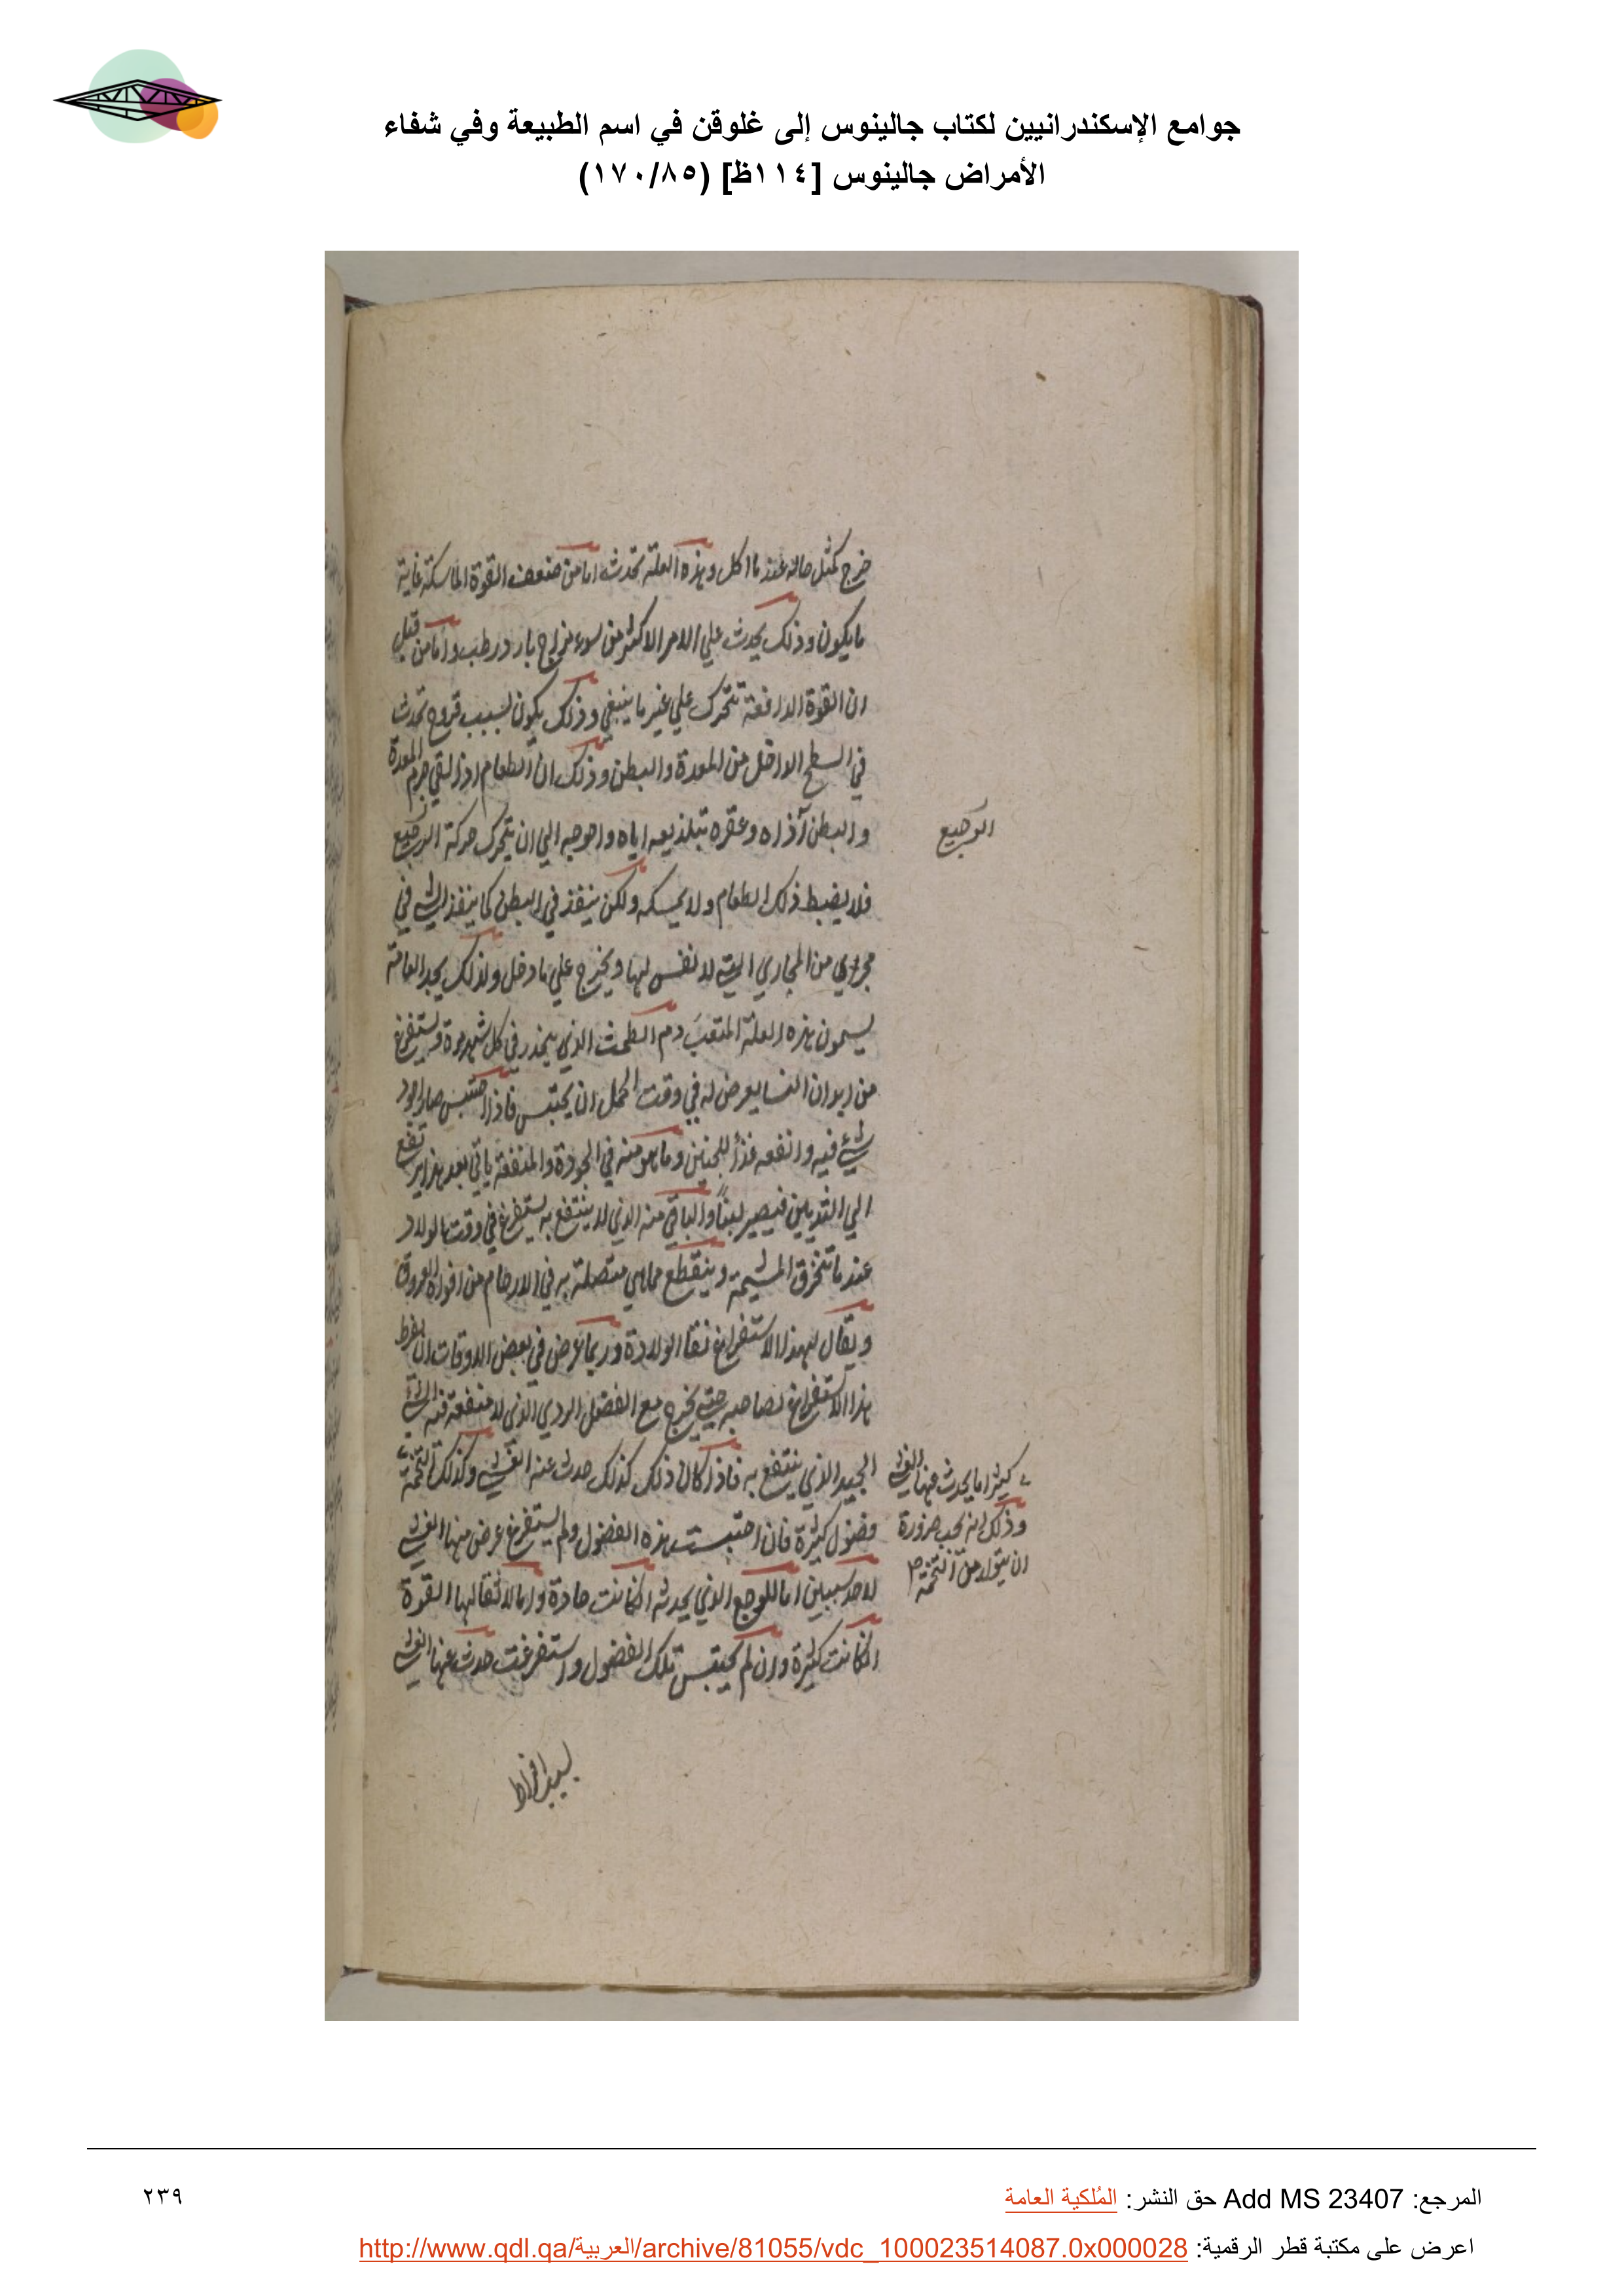 جوامع الإسكندرانيين لكتاب جالينوس إلى غلوقن في اسم الطبيعة وفي شفاء
الأمراض جالينوس [١١٤ظ] (١٧٠/٨٥)
خرج كمثل حاله عند ما اكل وهذه العلة تحدث اما من ضعف القوة الماسكة غاية
ما يكون وذلك يحدث علي الامر الاكثر من سوء مزاج بارد رطب واما من قبل
ان القوة الدافعة تتحرك علي غير ما ينبغي وذلك يكون بسبب قروح تحدث
في السطح الداخل من المعدة والبطن وذلك ان الطعام اذا لقي جرم المعدة
والبطن آذاه وعقره بتلذيعه اياه واحوجه الي ان يتحرك حركة
فلا يضبط ذلك الطعام ولا يمسكه ولكن ينفذ في البطن كما ينفذ الشي في
مجري من المجاري التي لا نفس لها ويخرج علي ما دخل ولذلك العامة
يسمون هذه العلة دم الطمث الذي ينحدر في كل شهر مرة ويستفرغ
من ابدان النسا يعرض له في وقت الحمل ان يحتبس فاذا احتبس صار اجود
شيء فيه وانفعه غذأ للجنين وما هو منه في الجودة والمنفعة ياتي بعد هذا يرتفع
الي الثديين فيصير لبناً والباقي منه الذي لا ينتفع به يستفرغ في وقت الولاد
عند ما تنخرق المشيمة وينقطع مما هي متصلة به في الارحام من افواه العروق
ويقال لهذا الاستفراغ نقا الولادة وربما عرض في بعض الاوقات ان يفرط
هذا الاستفراغ لصاحبه حتي يخرج مع الفضل الردي الذي لا منفعة فيه الشي
الجيد الذي ينتفع به فاذا كان ذلك كذلك حدث عنه الغشي وكذلك التخمة
فضول كثيرة فان احتبست هذه الفضول ولم يستفرغ عرض منها الغشي
لاحد سببين اما للوجع الذي يحدثه ان كانت حادة واما لاثقالها القوة
ان كانت كثيرة وان لم يحتبس تلك الفضول واستفرغت حدث عنها الغشي
كثيرا ما يحدث عنها الغشي
وذلك انه يجب ضرورة
ان يتولد من التخمة
المرجع: Add MS 23407 حق النشر: المُلكية العامة
٢٣٩
اعرض على مكتبة قطر الرقمية: http://www.qdl.qa/العربية/archive/81055/vdc_100023514087.0x000028